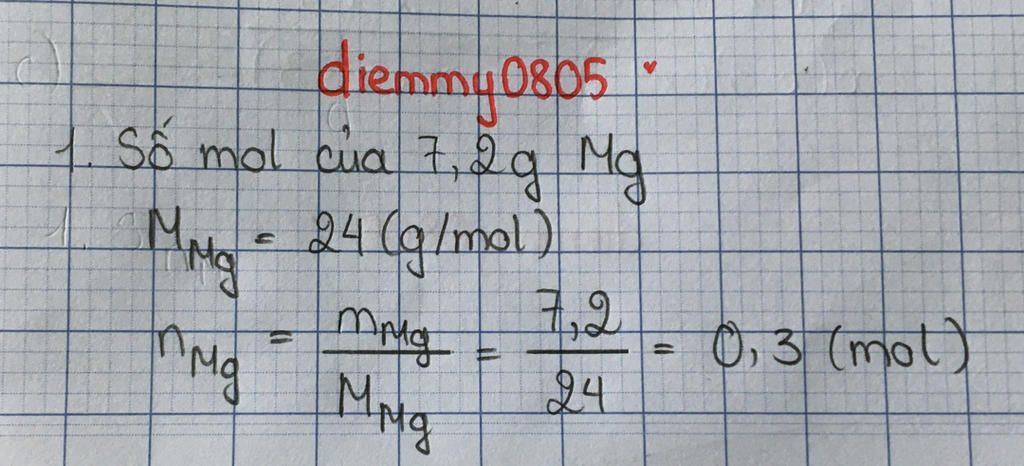 diemmy0805
1. Số mol của 7,2g Mg
M_Mg = 24 (g/mol)
n_Mg = m_Mg / M_Mg = 7,2 / 24 = 0,3 (mol)